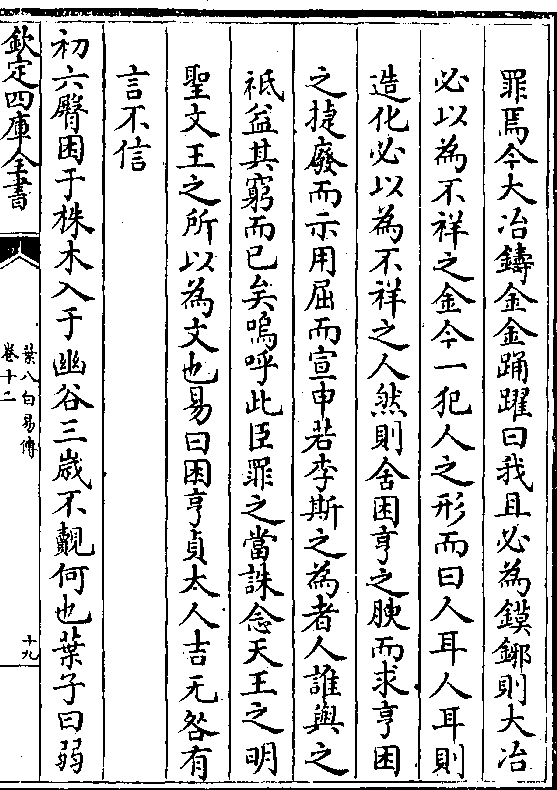 罪焉今大冶鑄金金踊躍曰我且必為鏌鋣則大冶
必以為不祥之金今一犯人之形而曰人耳人耳則
造化必以為不祥之人然則舍困亨之腴而求亨困
之捷廢而示用屈而宣申若李斯之為者人誰與之
祇益其窮而已矣嗚呼此臣罪之當誅念天王之明
聖文王之所以為文也易曰困亨貞大人吉无咎有
言不信
初六臀困于株木入于幽谷三歲不覿何也葉子曰弱
欽定四庫全書
葉八白易傳
卷十二
十九